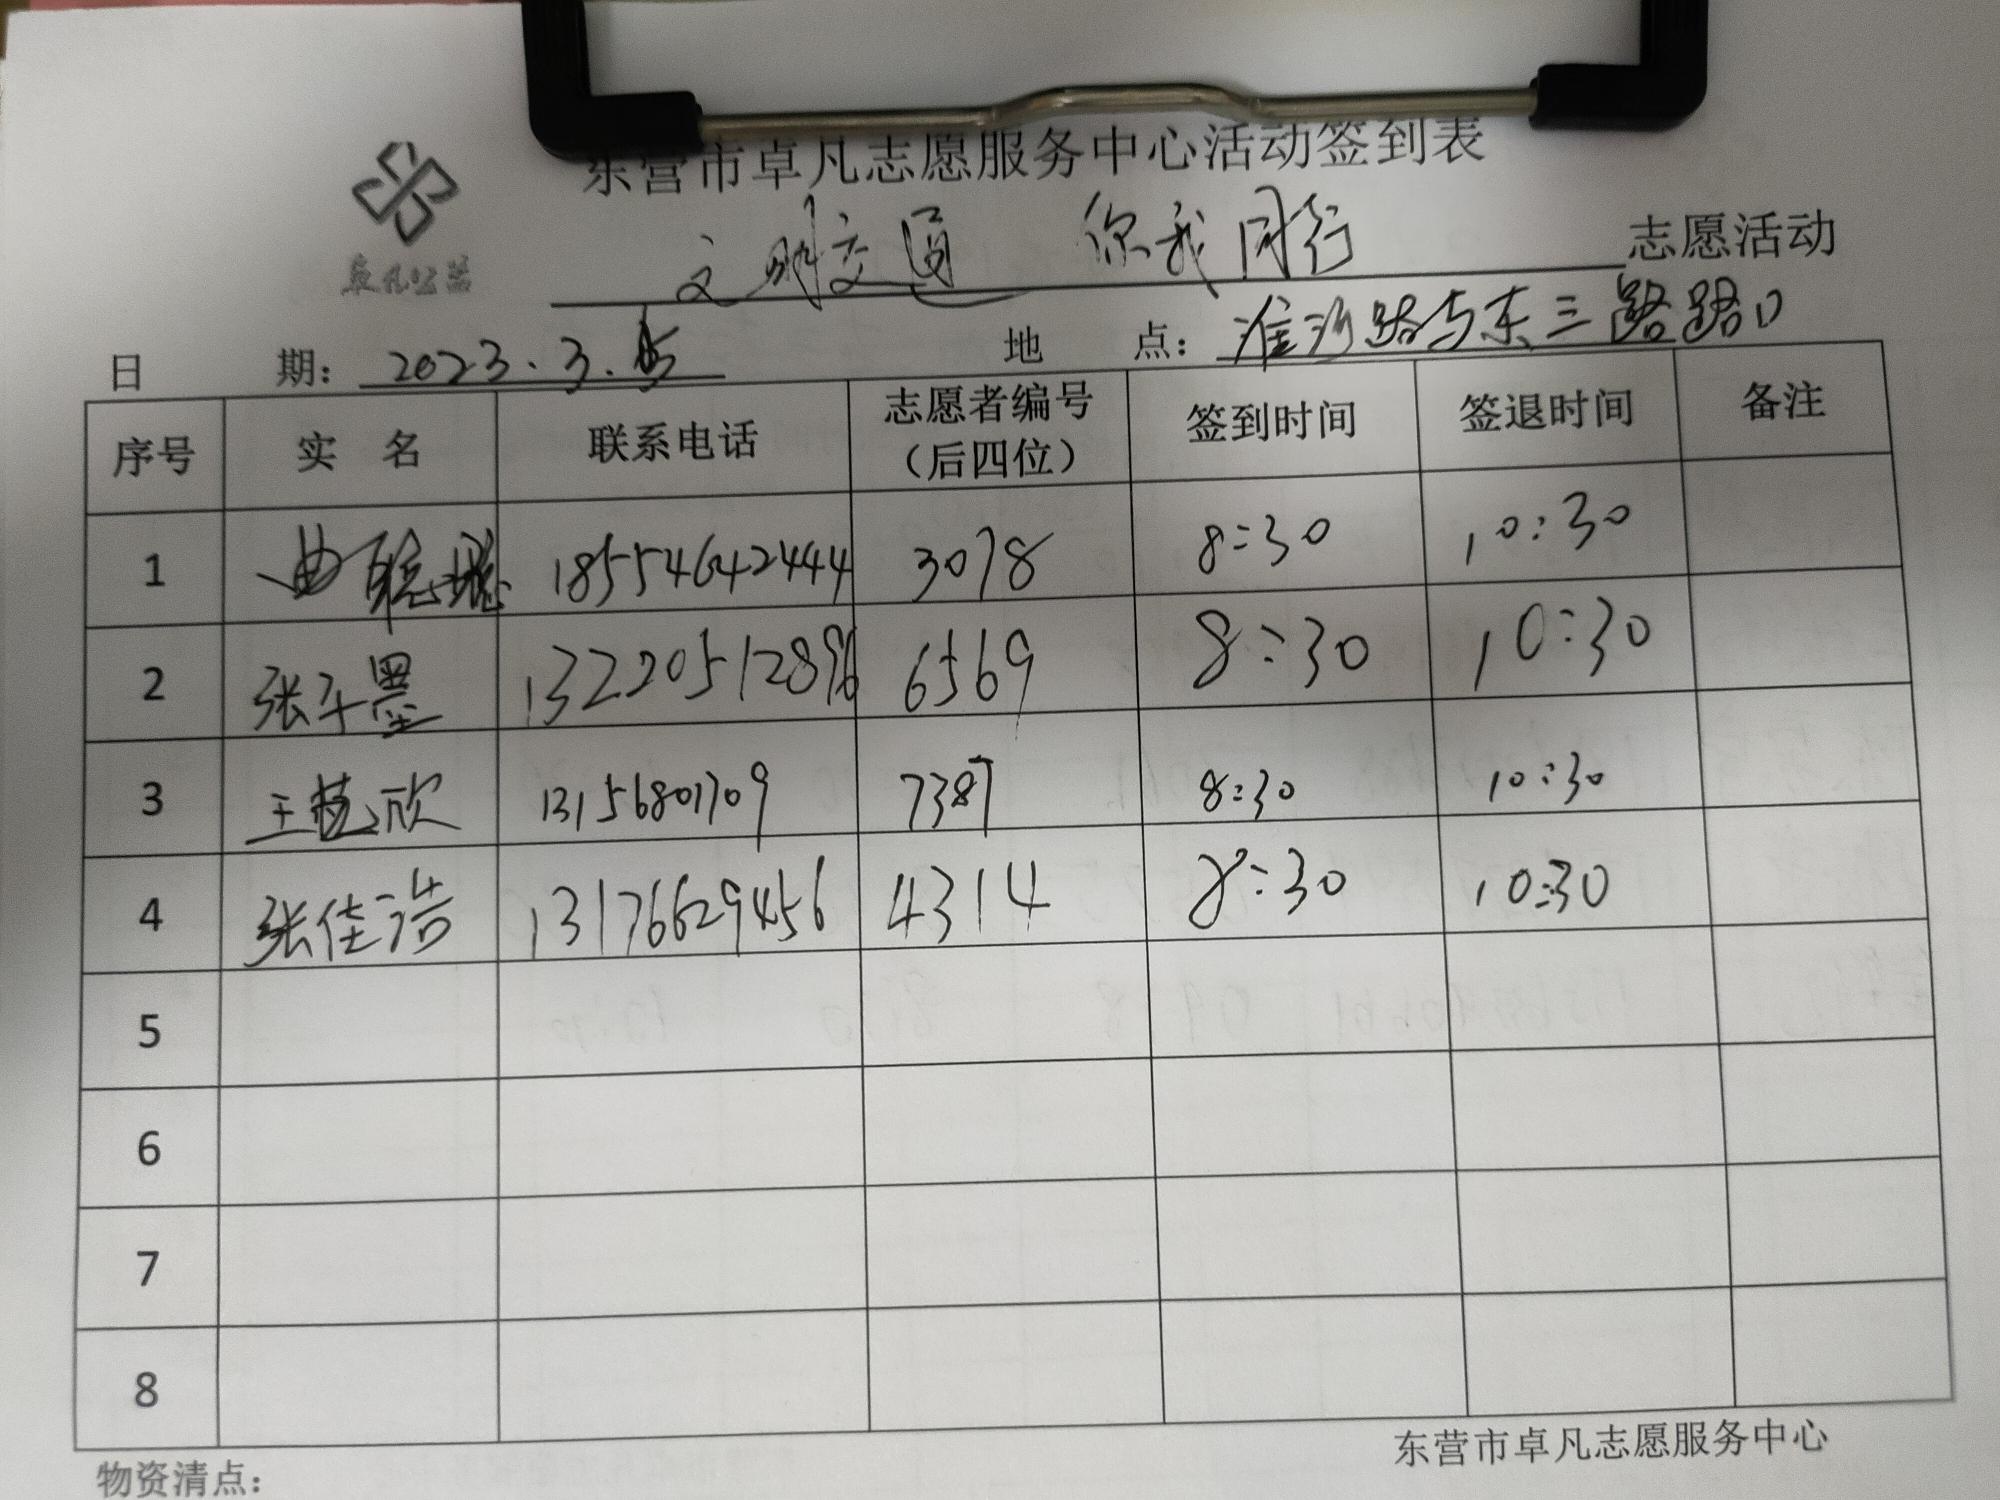 东营市卓凡志愿服务中心活动签到表
卓凡公益
文明交通 你我同行 志愿活动
日 期: 2023.3.5 地 点: 淮河路与东三路路口
序号 实 名 联系电话 志愿者编号（后四位） 签到时间 签退时间 备注
1 曲聪 18554642444 3078 8:30 10:30
2 张子墨 13220512896 6569 8:30 10:30
3 王艺欣 13156801709 7387 8:30 10:30
4 张佳浩 13176629456 4314 8:30 10:30
5
6
7
8
东营市卓凡志愿服务中心
物资清点: